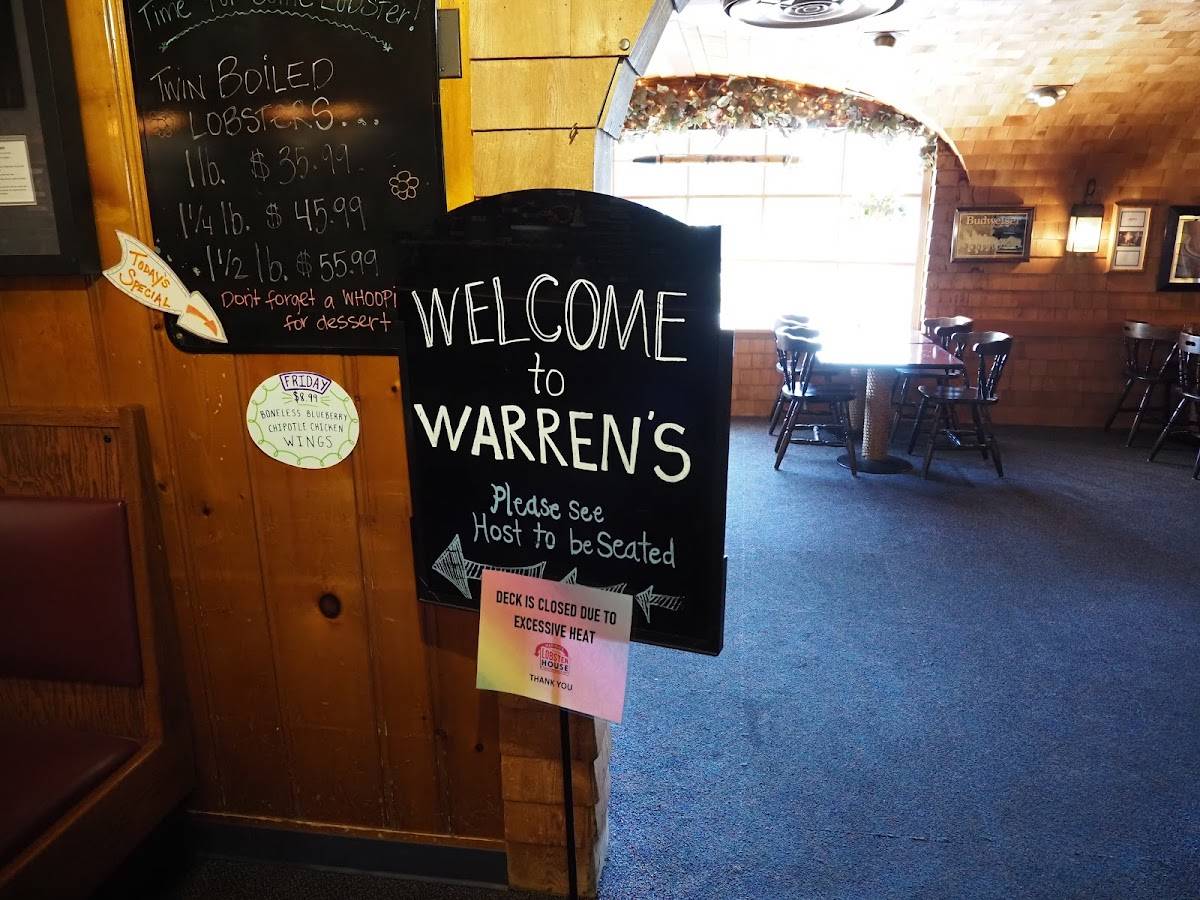 Time for some Lobster!
TWIN BOILED
LOBSTERS...
1 lb. $35.99
1 1/4 lb. $45.99
1 1/2 lb. $55.99
Don't forget a WHOOPI
for dessert
TODAY'S
SPECIAL
FRIDAY
$8.99
BONELESS BLUEBERRY
CHIPOTLE CHICKEN
WINGS
WELCOME
to
WARREN'S
Please see
Host to be Seated
DECK IS CLOSED DUE TO
EXCESSIVE HEAT
LOBSTER
HOUSE
THANK YOU
Budweiser